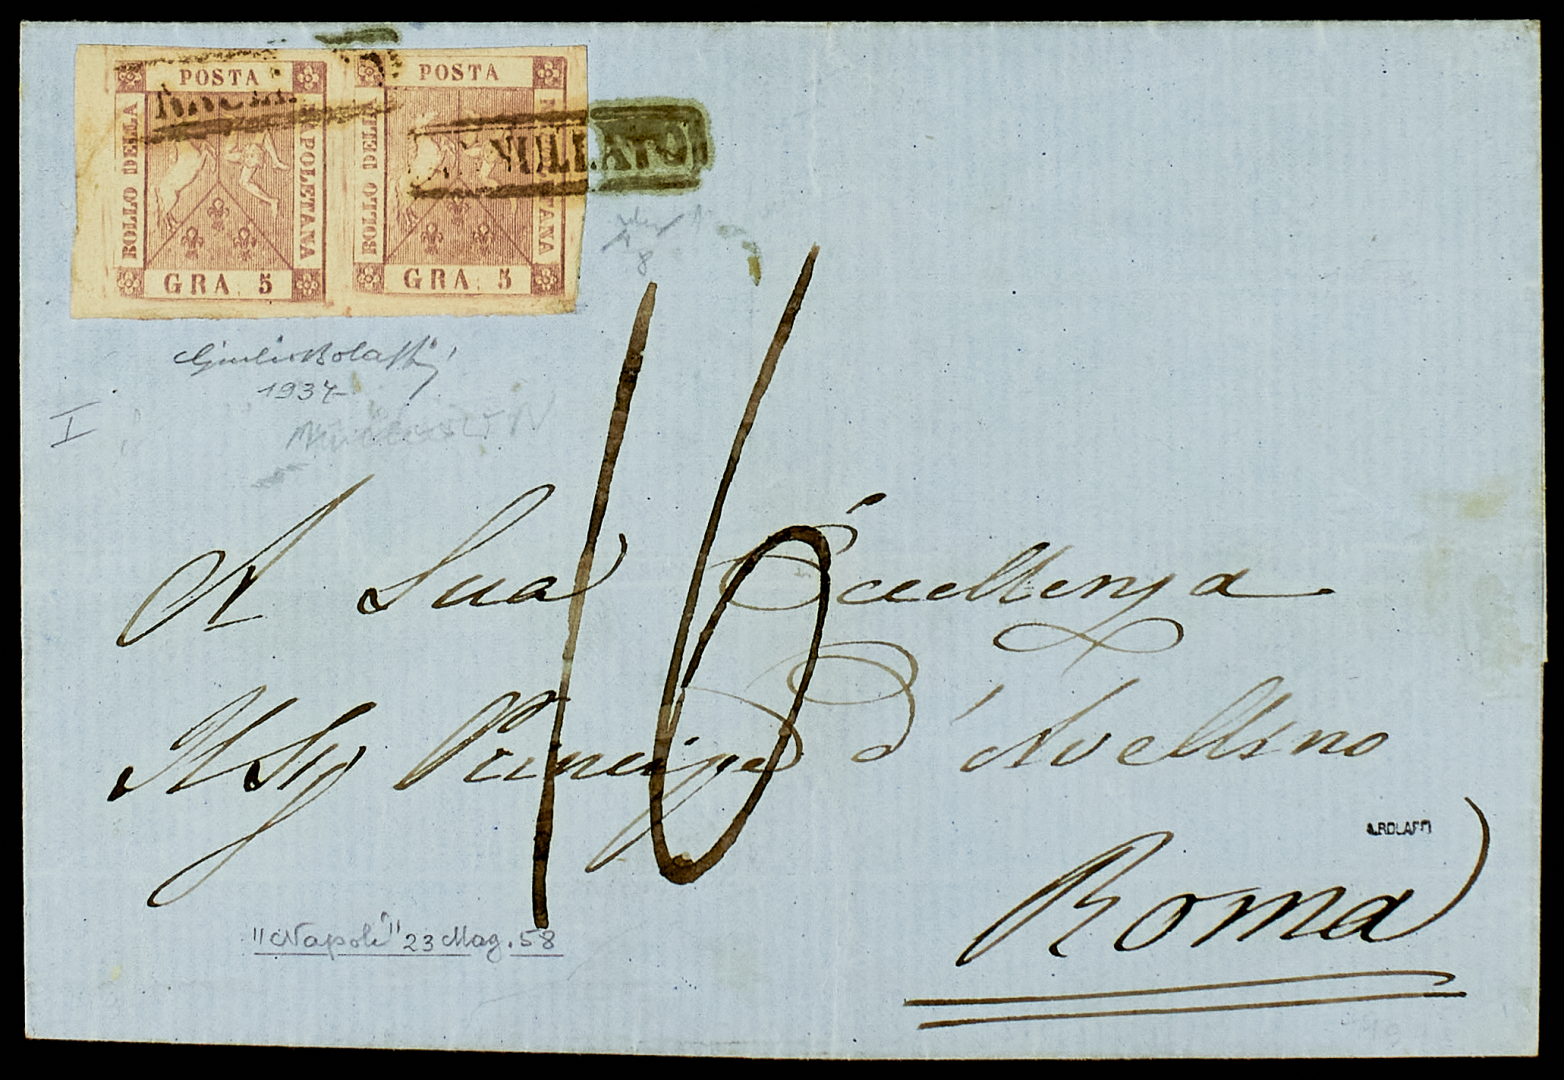 POSTA
BOLLO DELLA
NAPOLETANA
GRA 5
POSTA
BOLLO DELLA
GRA 5
ANNULLATO
Giulio Bolaffi
1934
I
16
A Sua Eccellenza
Il Sig Principe d'Avellino
A.BOLAFFI
Roma
"Napoli" 23 Mag. 58